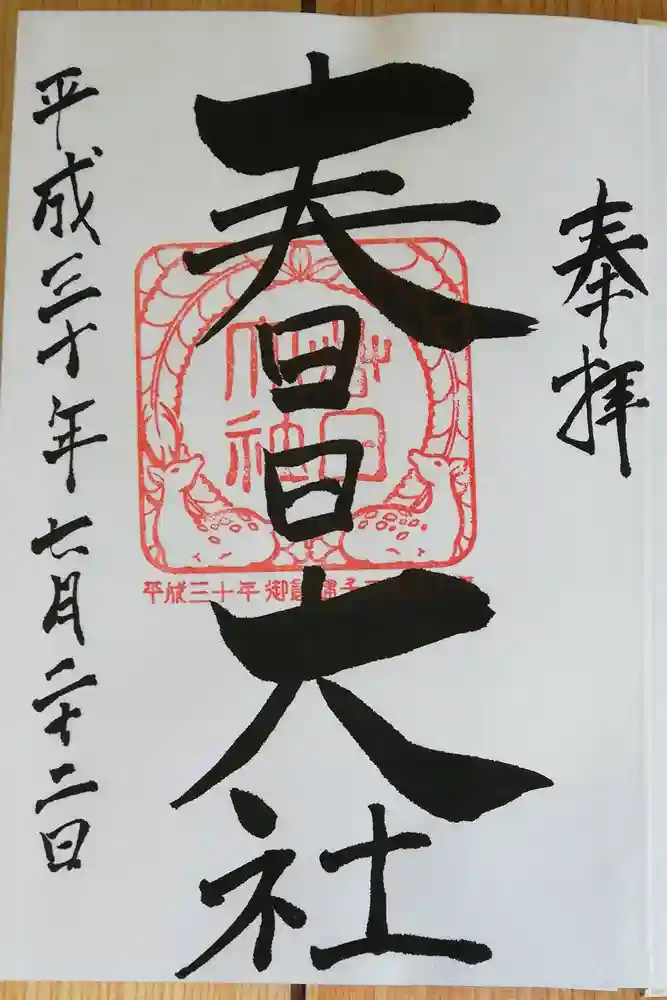 奉拝
春日大社
平成三十年七月二十二日
平成三十年 御